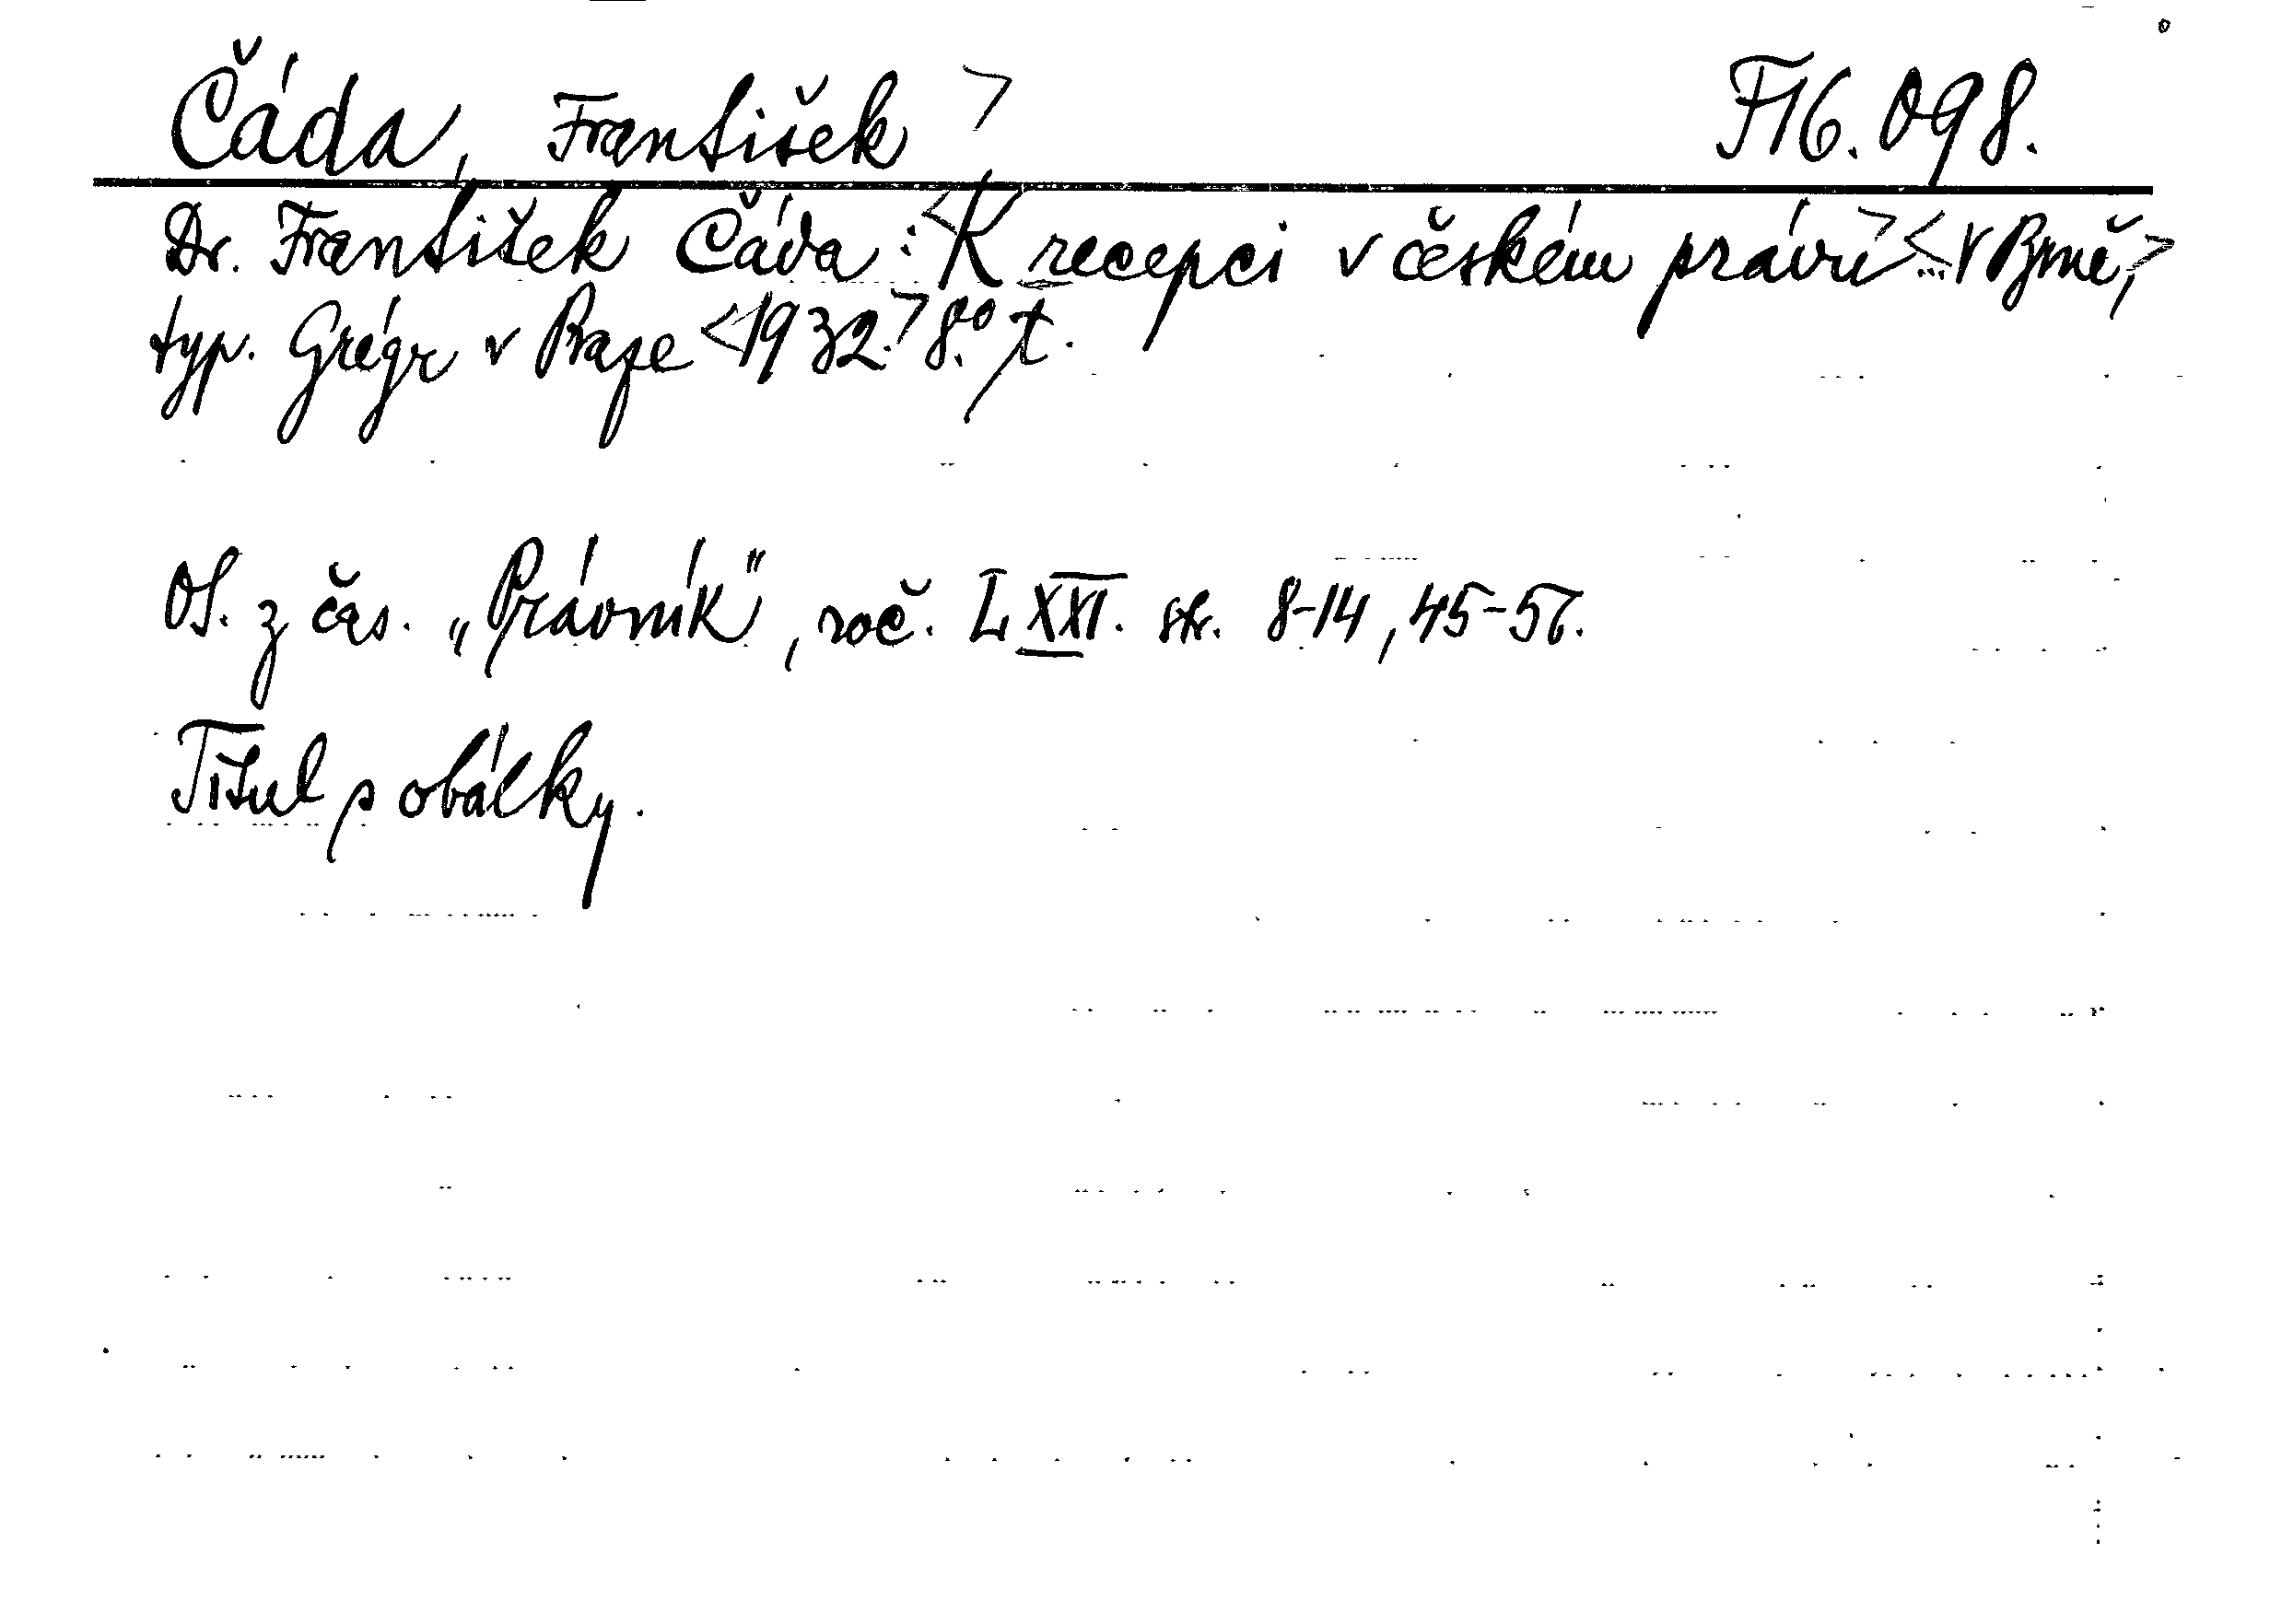 Čáda, František > F16.098.
Dr. František Čáda: <K recepci v českém právu> <... V Brně,>
typ. Grégr v Praze <1932.> 8.° t.
Ot. z čas. „Právník", roč. LXXI. str. 8-14, 45-57.
Titul s obálky.